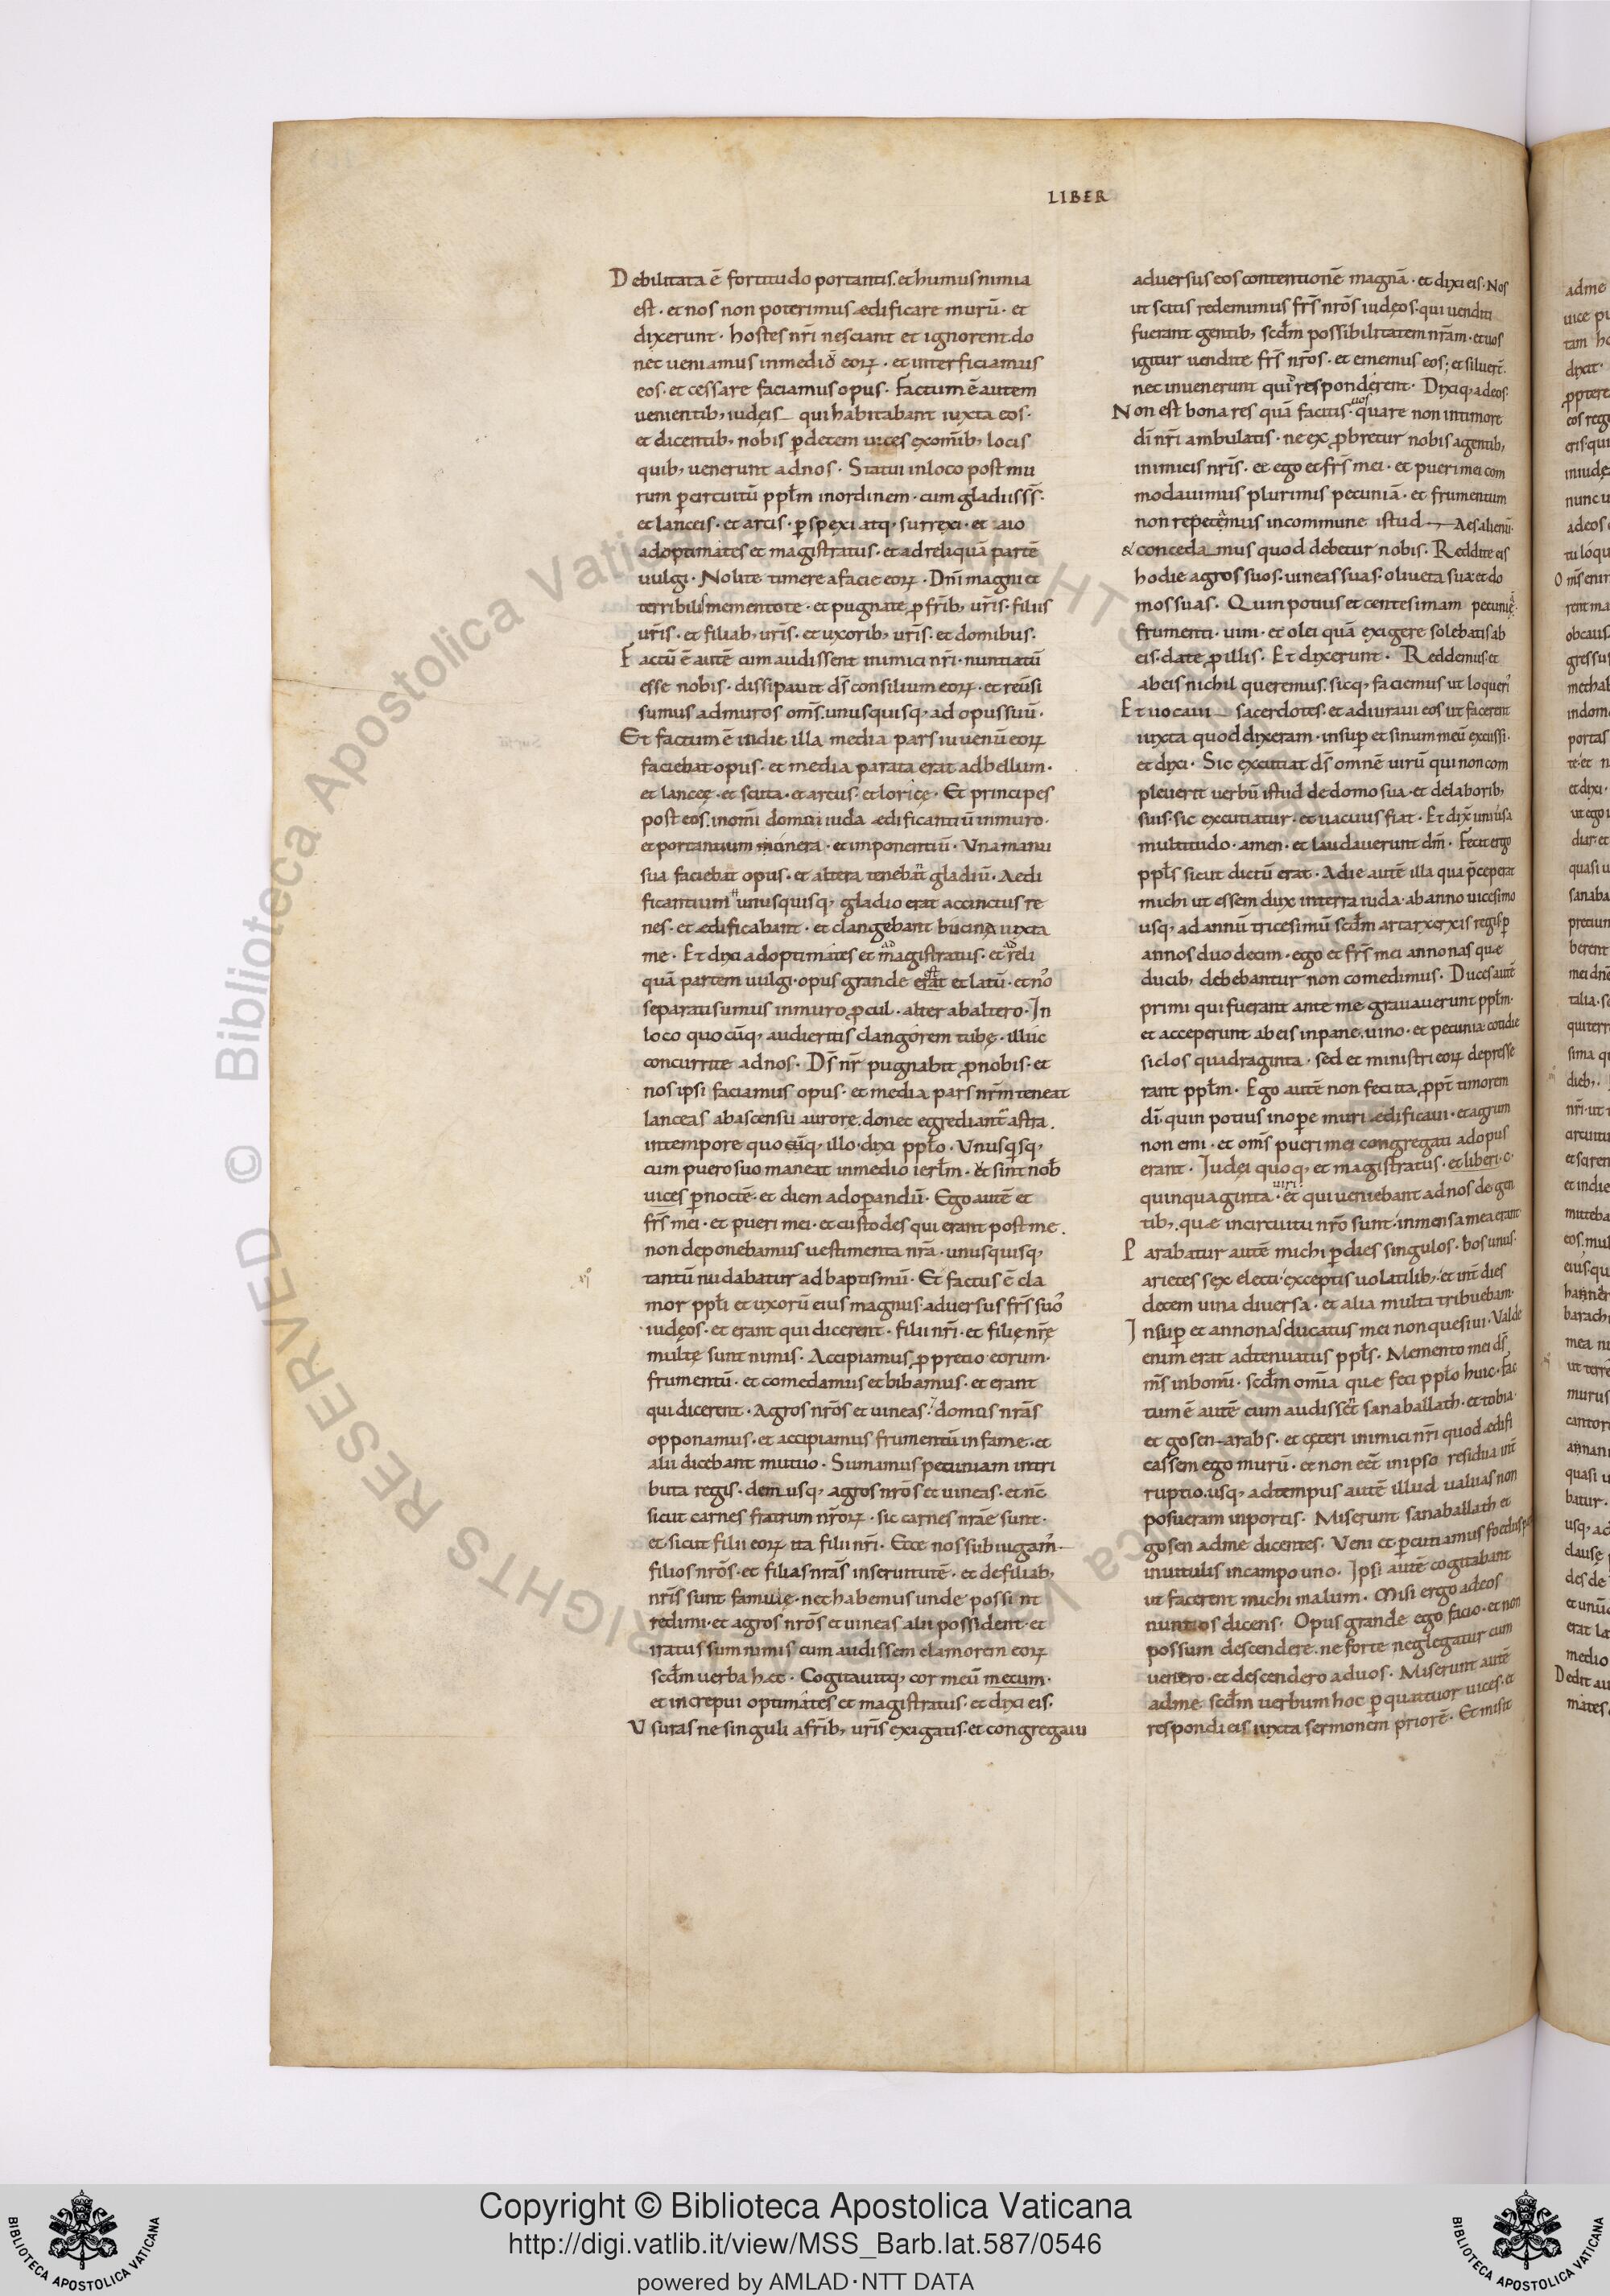 LIBER
Debilitata ē fortitudo portantis. et humus nimia
est · et nos non poterimus ædificare murū · et
dixerunt · hostes nr̄i nesciant et ignorent · do
nec ueniamus in mediō eoꝝ · et interficiamus
eos · et cessare faciamus opus · Factum ē autem
uenientib; iudęis qui habitabant iuxta eos ·
et dicentib; nobis ꝑ decem uices ex om̄ib; locis
quib; uenerunt ad nos · Statui in loco post mu
rum ꝑ circuitū ppl̄m in ordinem · cum gladiis s̄s̄ ·
et lanceis · et arcis · ꝑspexi atq; surrexi · et aio
ad optimates et magistratus · et ad reliquā partē
uulgi · Nolite timere a facie eoꝝ · Dn̄i magni et
terribilis mementote · et pugnate ꝓ fr̄ib; ur̄is · filiis
ur̄is · et filiab; ur̄is · et uxorib; ur̄is · et domibus ·
Factū ē autē cum audissent inimici nr̄i · nuntiatū
esse nobis · dissipauit ds̄ consilium eoꝝ · et reuersi
sumus ad muros om̄s. unusquisq; ad opus suū ·
Et factum ē in die illa media pars iuuenū eoꝝ
faciebat opus · et media parata erat ad bellum ·
et lanceę · et scuta · et arcus · et loricę · Et principes
post eos. in om̄i domu iuda ædificantiū in muro ·
et portantium onera · et imponentiū · Una manu
sua faciebat opus · et altera tenebat gladiū · Aedi
ficantium unusquisq; gladio erat accinctus re
nes · et ædificabant · et clangebant bucina iuxta
me · Et dixi ad optimates et ad magistratus · et ad reli
quā partem uulgi · opus grande est et latū · et nos
separati sumus in muro ꝓcul · alter ab altero · In
loco quocūq; audieritis clangorem tubę · illuc
concurrite ad nos · Ds̄ nr̄ pugnabit ꝓ nobis · et
nos ipsi faciamus opus · et media pars nr̄m teneat
lanceas ab ascensu aurore. donec egrediant̄ astra.
in tempore quocūq; illo · dixi ppl̄o · Unusqisq;
cum puero suo maneat in medio ierl̄m · et sint nob̄
uices ꝑ noctē · et diem ad oꝑandū · Ego autē et
fr̄s mei · et pueri mei · et custodes qui erant post me.
non deponebamus uestimenta nr̄a · unusquisq;
tantū nudabatur ad baptismū · Et factus ē cla
mor ppl̄i et uxorū eius magnus · aduersus fr̄s suos
iudęos · et erant qui dicerent · filii nr̄i · et filię nr̄ę
multę sunt nimis · Accipiamus ꝓ precio eorum ·
frumentū · et comedamus et bibamus · et erant
qui dicerent · Agros nr̄os et uineas · domus nr̄as
opponamus · et accipiamus frumentū in fame · et
alii dicebant mutuo · Sumamus pecuniam in tri
buta regis · demusq; agros nr̄os et uineas · et nc̄
sicut carnes fratrum nr̄oꝝ · sic carnes nr̄ae sunt ·
et sicut filii eoꝝ ita filii nr̄i · Ecce nos subiugam̉
filios nr̄os · et filias nr̄as in seruitutē · et de filiab;
nr̄is sunt famulę · nec habemus unde possint
redimi · et agros nr̄os et uineas alii possident · et
iratus sum nimis cum audissem clamorem eoꝝ
scd̄m uerba hæc · Cogitauitq; cor meū mecum ·
et increpui optimates et magistratus · et dixi eis ·
Usuras ne singuli a fr̄ib; ur̄is exigatis · et congregaui
aduersus eos contentionē magnā · et dixi eis · Nos
ut scitis redemimus fr̄s nr̄os iudęos · qui uenditi
fuerant gentib; scd̄m possibilitatem nr̄am · et uos
igitur uendite fr̄s nr̄os · et ememus eos; et siluer̄ ·
nec inuenerunt quid responderent · Dixiq; ad eos ·
Non est bona res quā facitis uos · quare non in timore
di̅ nr̄i ambulatis · ne exꝓbretur nobis a gentib;
inimicis nr̄is · et ego et fr̄s mei · et pueri mei com
modauimus plurimis pecuniā · et frumentum
non repetamus in commune istud Aes alienū ·
& concedamus quod debetur nobis · Reddite eis
hodie agros suos · uineas suas · oliueta sua · et do
mos suas · Quin potius et centesimam pecunię ·
frumenti · uini · et olei quā exigere solebatis ab
eis · date ꝓ illis · Et dixerunt · Reddemus · et
ab eis nichil queremus. sicq; faciemus ut loqueri̓
Et uocaui sacerdotes · et adiuraui eos ut facerent
iuxta quod dixeram · insuꝑ et sinum meū excussi ·
et dixi · Sic excutiat ds̄ omnē uirū qui non com
pleuerit uerbū istud de domo sua · et de laborib;
suis · sic excutiatur · et uacuus fiat · Et dix̄ uniūsa
multitudo · amen · et laudauerunt dm̄ · Fecit ergo
ppl̄s sicut dictū erat · A die autē illa qua p̄ceperat
michi ut essem dux in terra iuda · ab anno uicesimo
usq; ad annū tricesimū scd̄m artarxerxis regis · ꝑ
annos duodecim · ego et fr̄s mei annonas quæ
ducib; debebantur non comedimus · Duces autē
primi qui fuerant ante me grauauerunt ppl̄m ·
et acceperunt ab eis in pane. uino · et pecunia cotidie
siclos quadraginta · sed et ministri eoꝝ depresse
rant ppl̄m · Ego autē non feci ita ꝓpt̄ timorem
di̅ · quin potius in oꝑe muri ædificaui · et agrum
non emi · et om̄s pueri mei congregati ad opus
erant · Iudęi quoq; et magistratus · et liberi · c ·
quinquaginta uiri · et qui ueniebant ad nos de gen
tib;. quæ in circuitu nr̄o sunt · in mensa mea erant ·
Parabatur autē michi ꝑ dies singulos · bos unus ·
arietes sex electi · exceptis uolatilib; · et int̄ dies
decem uina diuersa · et alia multa tribuebam ·
Insuꝑ et annonas ducatus mei non quesiui · Valde
enim erat adtenuatus ppl̄s · Memento mei ds̄
m̄s in bonū · scd̄m om̄ia quæ feci ppl̄o huic · Fac
tum ē autē cum audisset sanaballath · et tobia ·
et gosen arabs · et cęteri inimici nr̄i quod ædifi
cassem ego murū · et non eēt in ipso residua int̄
ruptio. usq; ad tempus autē illud ualuas non
posueram in portis · Miserunt sanaballath et
gosen ad me dicentes · Veni et ꝑcutiamus foedus
in uitulis in campo uno · Ipsi autē cogitabant
ut facerent michi malum · Misi ergo ad eos
nuntios dicens · Opus grande ego facio · et non
possum descendere · ne forte neglegatur cum
uenero · et descendero ad uos · Miserunt autē
ad me scd̄m uerbum hoc ꝑ quattuor uices · et
respondi eis iuxta sermonem priorē · Et misit
Copyright © Biblioteca Apostolica Vaticana
http://digi.vatlib.it/view/MSS_Barb.lat.587/0546
powered by AMLAD·NTT DATA
BIBLIOTECA APOSTOLICA VATICANA
BIBLIOTECA APOSTOLICA VATICANA